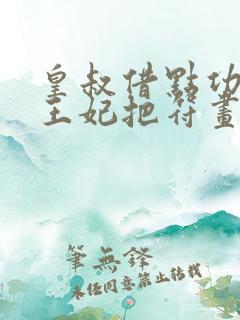 皇叔借點功
王妃把符畫
筆無鋒
未經同意禁止轉載